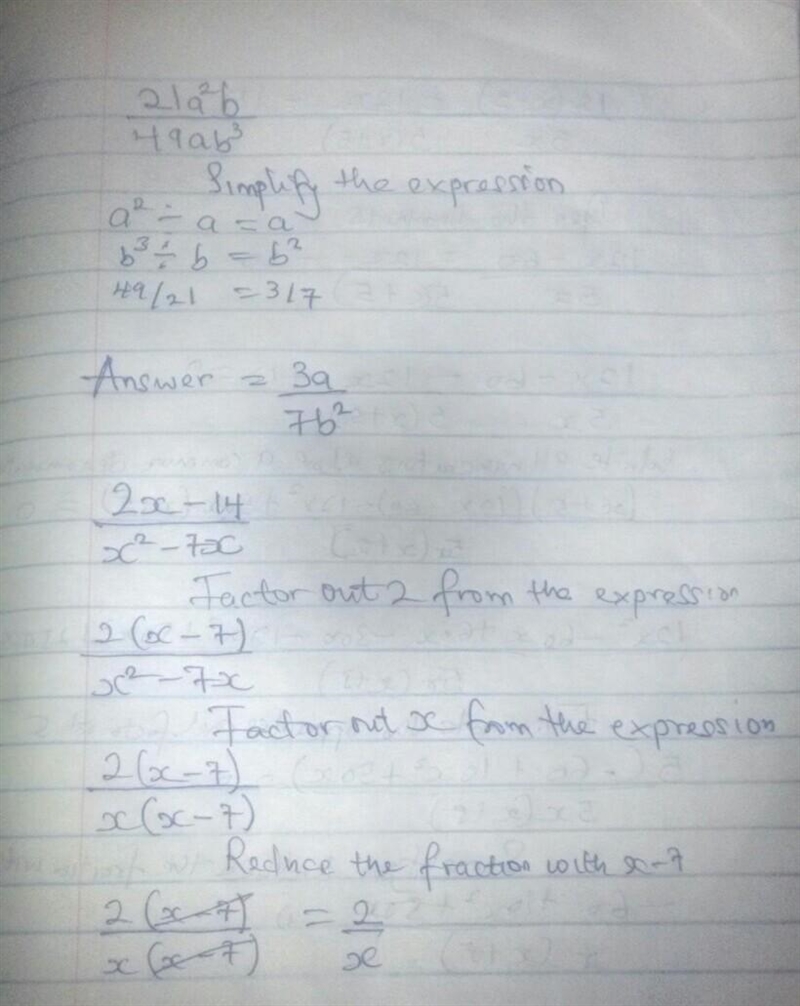 21a²b
49ab³
Simplify the expression
a² ÷ a = a
b³ ÷ b = b²
49/21 = 3/7
Answer = 3a
7b²
2x - 14
x² - 7x
Factor out 2 from the expression
2(x - 7)
x² - 7x
Factor out x from the expression
2(x - 7)
x(x - 7)
Reduce the fraction with x-7
2(x - 7) = 2
x(x - 7) x